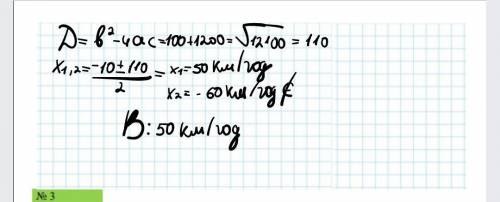 D = b² - 4ac = 100 + 1200 = √12100 = 110
x1,2 = (-10 ± 110)/2 = x1 = 50 км/год
x2 = - 60 км/год ∉
В: 50 км/год
№ 3